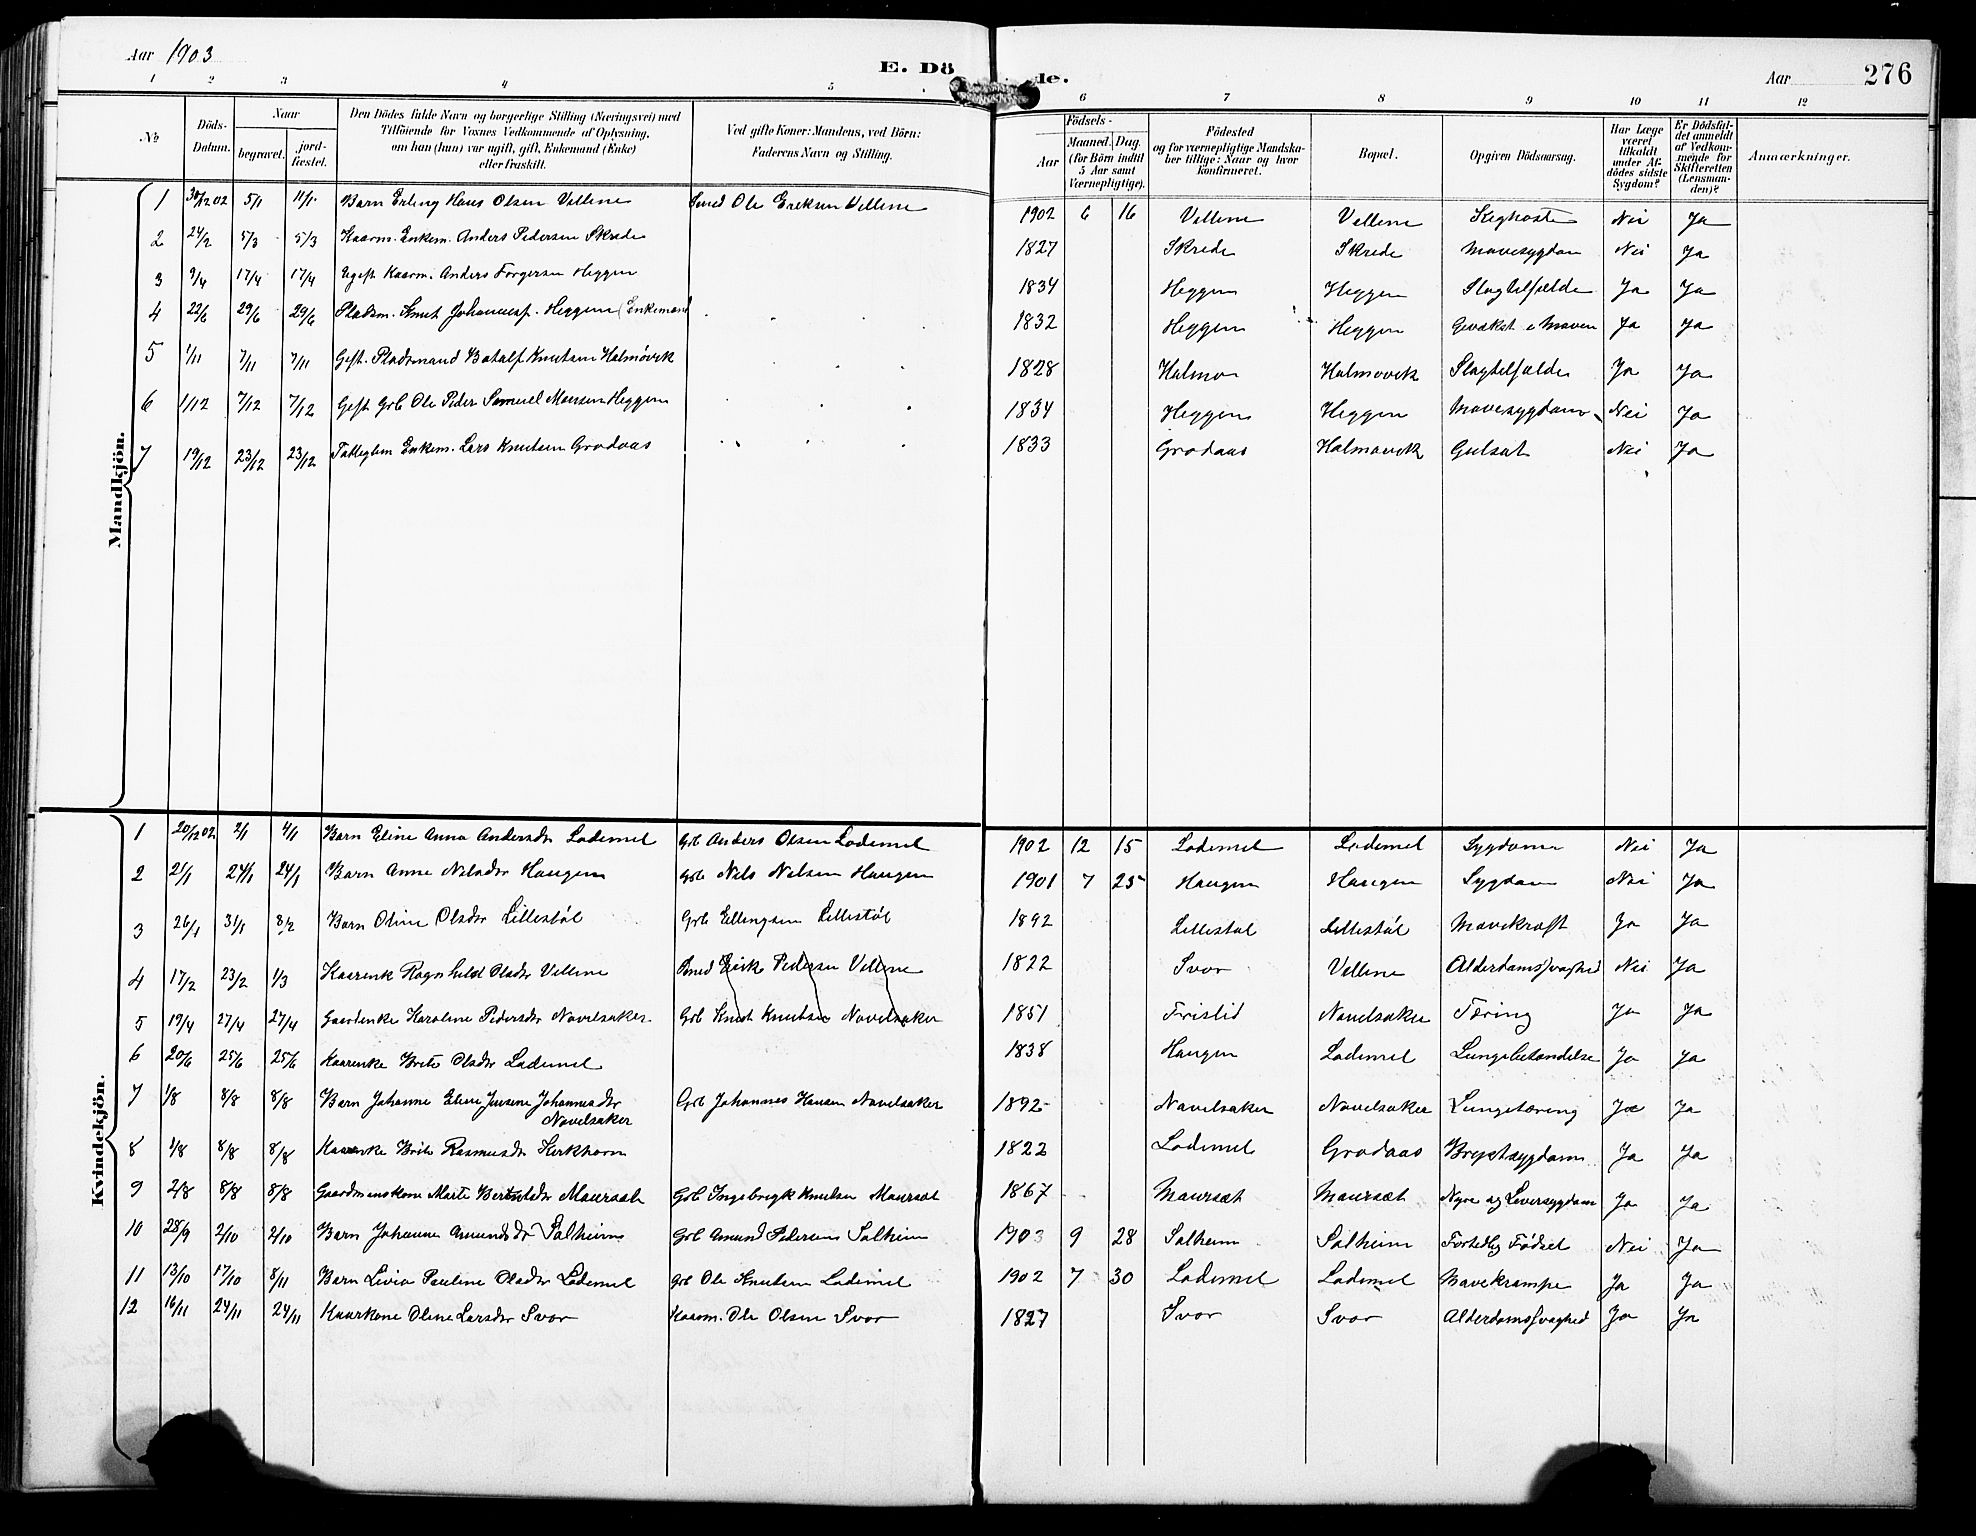 Aar 1903
E. Dö
de.
Aar
276
1 2 3 4 5 6 7 8 9 10 11 12
№
Döds-Datum.
Naar
begravet.
jord-fæstet.
Den Dödes fulde Navn og borgerlige Stilling (Næringsvei) med
Tilföiende for Voxnes Vedkommende af Oplysning,
om han (hun) var ugift, gift, Enkemand (Enke)
eller fraskilt.
Ved gifte Koner: Mandens, ved Börn:
Faderens Navn og Stilling.
Födsels-
Aar
Maaned. Dag.
(for Börn indtil
5 Aar samt
Værnepligtige).
Födested
og for værnepligtige Mandska-
ber tillige: Naar og hvor
konfirmeret.
Bopæl.
Opgiven Dödsaarsag.
Har Læge
været
tilkaldt
under Af-
dödes sidste
Sygdom?
Er Dödsfal-
det anmeldt
af Vedkom-
mende for
Skifteretten
(Lensman-
den)?
Anmærkninger.
Mandkjön.
1 30/12 02 5/1 11/1 Barn Erling Hans Olsen Vellene Smed Ole Eriksen Vellene 1902 6 16 Vellene Vellene Kighoste Nei Ja
2 24/2 5/3 5/3 Kaarm. Enkem. Anders Pedersen Skrede 1827 Skrede Skrede Mavesygdom Nei Ja
3 9/4 17/4 17/4 Ugift Kaarm. Anders Torgersen Heggen 1834 Heggen Heggen Slagtilfælde Ja Ja
4 22/6 29/6 29/6 Pladsm. Knut Johanness. Heggen (Enkemand 1832 Heggen Heggen Gevækst i Maven Ja Ja
5 1/11 7/11 7/11 Gift. Pladsmand Botolf Knutsen Holmøvik 1828 Holmø Holmøvik Slagtilfælde Ja Ja
6 1/12 7/12 7/12 Gift Grb Ole Peder Samuel Monsen Heggen 1834 Heggen Heggen Mavesygdom Nei Ja
7 19/12 23/12 23/12 Enkem. Lars Knutsen Grodaas 1833 Grodaas Holmøvik Gulsot Nei Ja
Kvindekjön.
1 20/12 02 2/1 4/1 Barn Eline Anna Andersdr Lødemel Grb Anders Olsen Lødemel 1902 12 15 Lødemel Lødemel Sygdom Nei Ja
2 21/1 24/1 24/1 Barn Anne Nilsdr Haugen Grb Nils Nilsen Haugen 1901 7 25 Haugen Haugen Sygdom Nei Ja
3 26/1 31/1 8/2 Barn Oline Olsdr Lillestøl Grb Ellingsen Lillestøl 1892 Lillestøl Lillestøl Mavekræft Ja Ja
4 17/2 23/2 1/3 Kaarenk Ragnhild Olsdr Vellene Smed Erik Pedersen Vellene 1822 Svor Vellene Alderdomssvaghed Nei Ja
5 19/4 27/4 27/4 Gaardenke Karoline Pedersdr Navelsaker Grb Knut Knutsen Navelsaker 1851 Frislid Navelsaker Tæring Ja Ja
6 20/6 25/6 25/6 Kaarenke Brite Olsdr Lødemel 1838 Haugen Lødemel Lungebetændelse Ja Ja
7 1/8 8/8 8/8 Barn Johanne Eline Jensine Johannesdr Grb Johannes Hansen Navelsaker 1892 Navelsaker Navelsaker Lungetæring Ja Ja
Navelsaker
8 1/8 8/8 8/8 Kaarenke Brite Rasmusdr Kirkhorn 1822 Lødemel Grodaas Brystsygdom Ja Ja
9 2/8 8/8 8/8 Gaardmanskone Marte Maurset Grb Ingebrigt Knutsen Maurset 1867 Maurset Maurset Nyre og Leversygdom Ja Ja
10 28/9 2/10 2/10 Barn Johanne Amundsdr Solheim Grb Amund Pedersen Solheim 1903 9 28 Solheim Solheim Fortidlig Fødsel Nei Ja
11 13/10 17/10 8/11 Barn Livia Pauline Olsdr Lødemel Grb Ole Knutsen Lødemel 1902 7 30 Lødemel Lødemel Mavekrampe Ja Ja
12 16/11 24/11 24/11 Kaarkone Oline Larsdr Svor Kaarm. Ole Olsen Svor 1827 Svor Svor Alderdomssvaghed Ja Ja